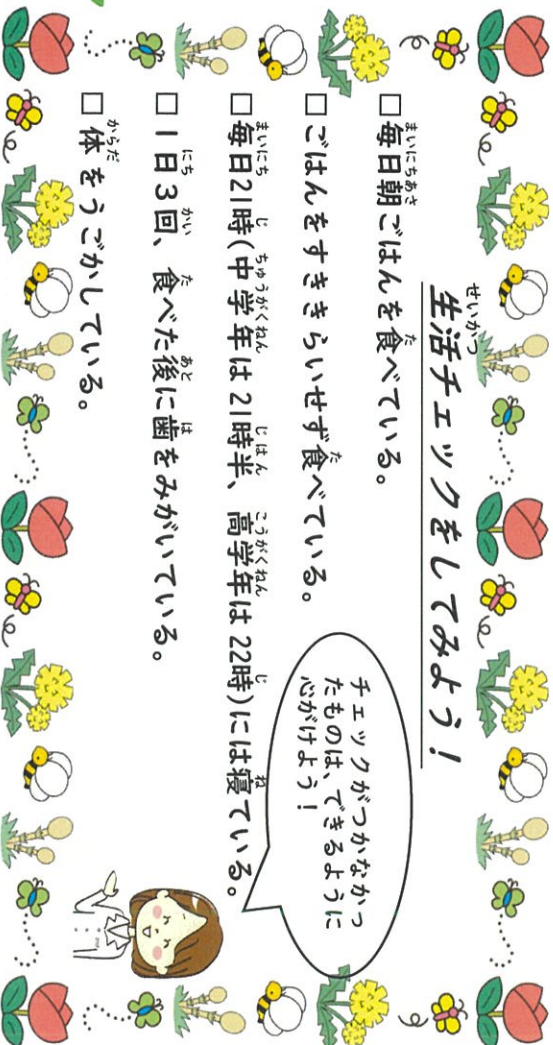 生活チェックをしてみよう！
□毎日朝ごはんを食べている。
□ごはんをすききらいせず食べている。
□毎日21時(中学年は21時半、高学年は22時)には寝ている。
□1日3回、食べた後に歯をみがいている。
□体をうごかしている。
チェックがつかなかっ
たものは、できるように
心がけよう！